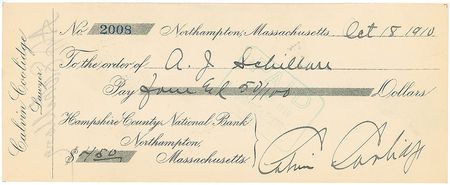 Calvin Coolidge
Lawyer
No. 2008 Northampton, Massachusetts. Oct 18 1910
To the order of A. J. Schillare
Pay four & 50/100 Dollars
Hampshire County National Bank
Northampton,
$ 4.50 Massachusetts.
Calvin Coolidge